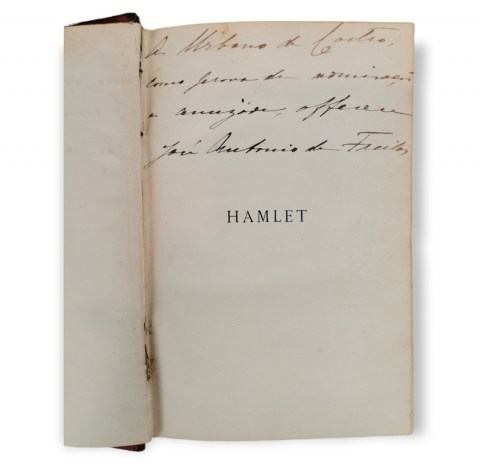 A Urbano de Castro,
como prova de admiração
e amizade, offerece
José Antonio de Freitas
HAMLET